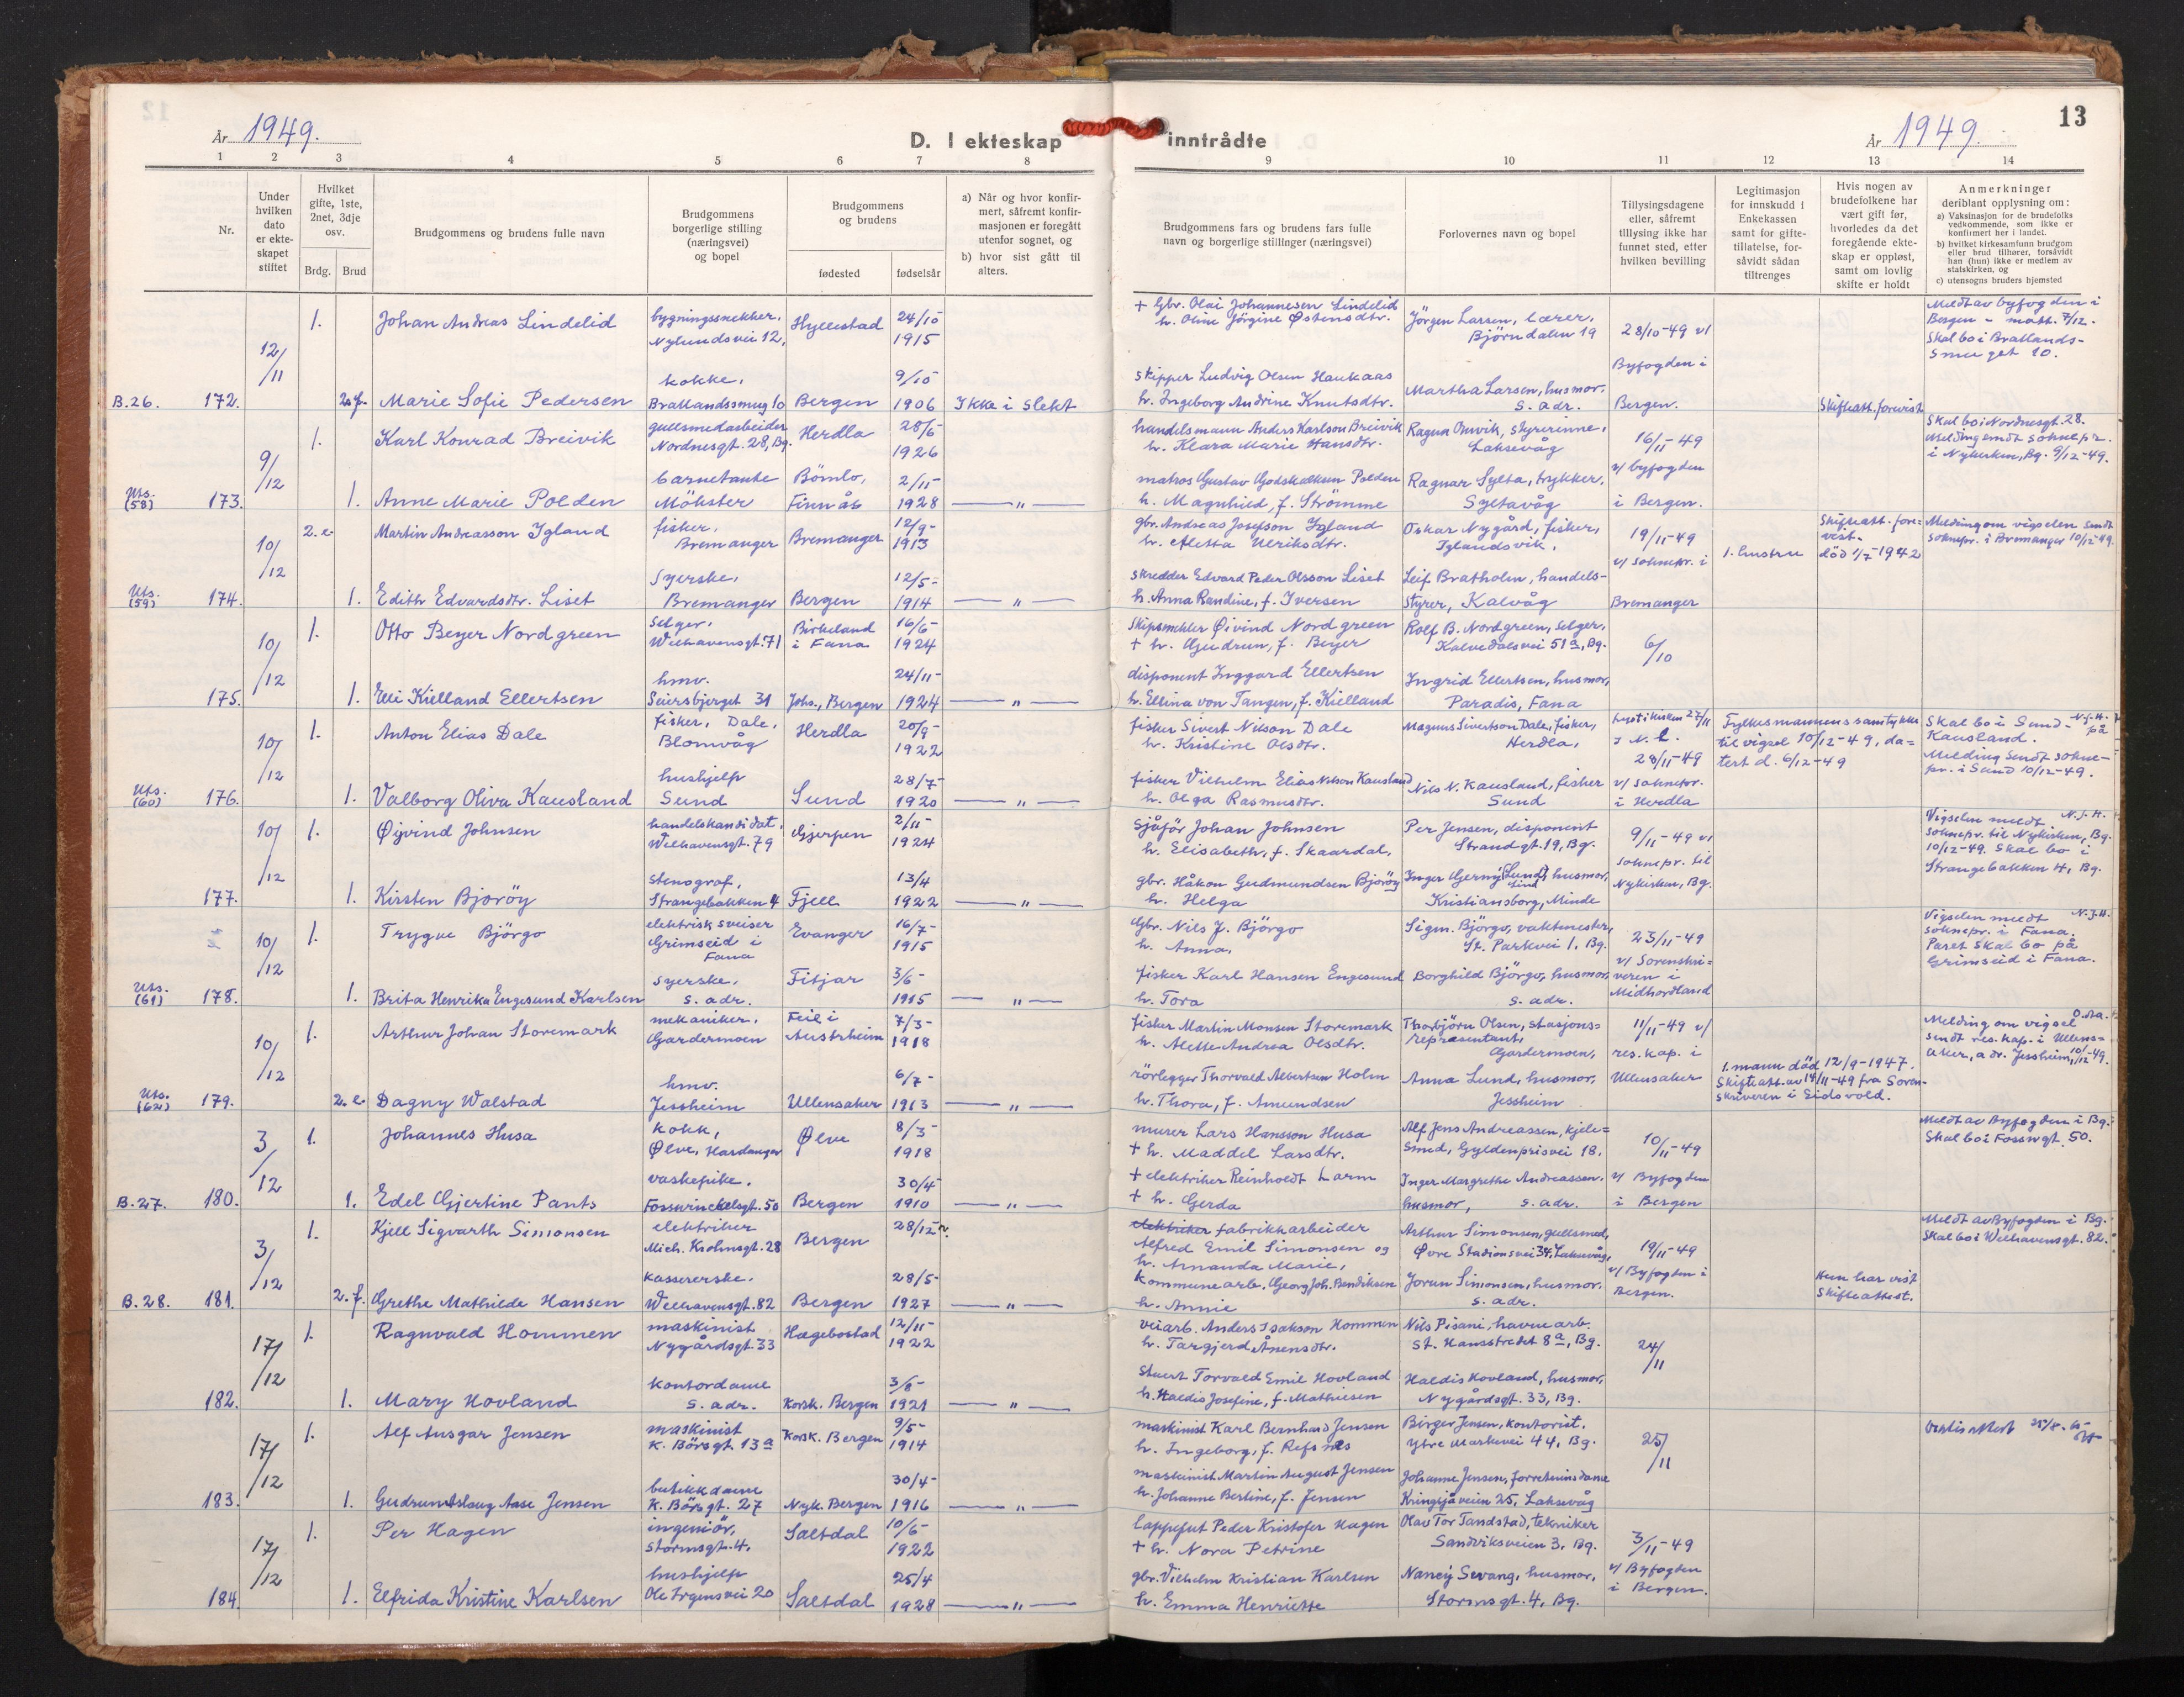 År 1949.
D. I ekteskap inntrådte
År 1949.
13
1 2 3 4 5 6 7 8 9 10 11 12 13 14
Nr.
Under hvilken dato er ekteskapet stiftet
Hvilket gifte, 1ste, 2net, 3dje osv.
Brdg. Brud
Brudgommens og brudens fulle navn
Brudgommens borgerlige stilling (næringsvei) og bopel
Brudgommens og brudens
fødested
fødselsår
a) Når og hvor konfirmert, såfremt konfirmasjonen er foregått utenfor sognet, og
b) hvor sist gått til alters.
Brudgommens fars og brudens fars fulle navn og borgerlige stillinger (næringsvei)
Forlovernes navn og bopel
Tillysingsdagene eller, såfremt tillysing ikke har funnet sted, etter hvilken bevilling
Legitimasjon for innskudd i Enkekassen samt for giftetillatelse, forsåvidt sådan tiltrenges
Hvis nogen av brudefolkene har vært gift før, hvorledes da det foregående ekteskap er oppløst, samt om lovlig skifte er holdt
Anmerkninger deriblant opplysning om:
a) Vaksinasjon for de brudefolks vedkommende, som ikke er konfirmert her i landet.
b) hvilket kirkesamfunn brudgom eller brud tilhører, forsåvidt han (hun) ikke er medlem av statskirken, og
c) utensogns bruders hjemsted
B.26. 172. 12/11
1. Johan Andreas Lindelid bygningssnekker, Nylundsvei 12, Hyllestad 24/10 1915
+ Gbr. Olai Johannesen Lindelid h. Oline Jörgine Østensdtr. Jörgen Larsen, lærer, Björndalen 19
28/10-49 v/ Byfogden i Bergen.
Meldt av byfogden i Bergen - mott. 7/12. Skal bo i Bratlandssmuget 10.
2. f. Marie Sofie Pedersen kokke, Bratlandssmug 10 Bergen 9/10 1906 Ikke i slekt
skipper Ludvig Olsen Haukaas h. Ingeborg Andrine Knutsdtr. Martha Larsen, husmor, s. adr.
Skifteatt. forevist
Uts. (58) 173. 9/12
1. Karl Konrad Breivik gullsmedarbeider Nordnesgt. 28, Bg. Herdla 28/6 1926
handelsmann Anders Karlson Breivik h. Klara Marie Hansdtr. Ragna Omvik, styrerinne, Laksevåg
16/11-49 v/ byfogden i Bergen.
Skal bo i Nordnesgt. 28. Melding sendt soknepr. i Nykirken, Bg. 9/12-49.
1. Anne Marie Polden barnetante Mökster Bömlo, Finnås 2/11- 1928 — " —
matros Gustav Godskalksen Polden h. Magnhild, f. Strömme Ragnar Sylta, trykker, Syltavåg
Uts. (59) 174. 10/12
2. e. Martin Andreasson Igland fisker, Bremanger Bremanger 12/9- 1913
gbr. Andreas Josefson Igland h. Aletta Ulriksdtr. Oskar Nygård, fisker, Iglandsvik,
19/11-49 v/ soknepr. i Bremanger
1. hustru död 1/7-1942 Skifteatt. forevist.
Melding om vigselen sendt soknepr. i Bremanger 10/12-49.
1. Edith Edvardsdtr. Liset syerske, Bremanger Bergen 12/5- 1914 — " —
skredder Edvard Peder Olsson Liset h. Anna Randine, f. Iversen Leif Bratholm, handelsstyrer, Kalvåg
175. 10/12
1. Otto Beyer Nordgreen selger, Welhavensgt. 71 Birkeland i Fana 16/6- 1924
Skipsmekler Øivind Nordgreen + h. Gudrun, f. Beyer Rolf B. Nordgreen, selger, Kalvedalsvei 51 a, Bg.
6/10
1. Elli Kielland Ellertsen hmv. Seiersbjerget 31 Johs., Bergen 24/11- 1924 — " —
disponent Inggard Ellertsen h. Ellina von Tangen, f. Kielland Ingrid Ellertsen, husmor, Paradis, Fana
Uts. (60) 176. 10/12
1. Anton Elias Dale fisker, Dale, Blomvåg Herdla 20/9- 1922
fisker Sivert Nilson Dale h. Kristine Olsdtr. Magnus Sivertson Dale, fisker, Herdla,
28/11-49 v/ soknepr. i Herdla
Fylkesmannens samtykke til vigsel 10/12-49, datert d. 6/12-49
Skal bo i Sund - på Kausland. N.J.H. Melding sendt soknepr. i Sund 10/12-49.
1. Valborg Oliva Kausland hushjelp Sund Sund 28/7- 1920 — " —
fisker Vilhelm Elias Nilson Kausland h. Olga Rasmusdtr. Nils N. Kausland, fisker Sund
177. 10/12
1. Øyvind Johnsen handelskandidat, Welhavensgt. 79 Gjerpen 2/11- 1924
sjåför Johan Johnsen h. Elisabeth, f. Skaardal, Per Jensen, disponent Strandgt. 19, Bg.
9/11-49 v/ soknepr. til Nykirken, Bg.
Vigselen meldt N.J.H. soknepr. til Nykirken, Bg. 10/12-49. Skal bo i Strangebakken 4, Bg.
1. Kirsten Bjoröy stenograf, Strangebakken 4 Fjell 13/4 1922 — " —
gbr. Håkon Gudmundsen Bjoröy h. Helga Inger Gerny (Lund) Lind, husmor, Kristiansborg, Minde
Uts. (61) 178. 10/12
1. Trygve Björgo elektrisk sveiser Grimseid i Fana Evanger 16/7- 1915
Gbr. Nils J. Björgo h. Anna, Sigm. Björgo, vaktmester, St. Parkvei 1, Bg.
23/11-49 v/ Sorenskriveren i Midhordland
Vigselen meldt N.J.H. soknepr. i Fana. Paret skal bo på Grimseid i Fana.
1. Brita Henrika Engesund Karlsen syerske, s. adr. Fitjar 3/6- 1915 — " —
fisker Karl Hansen Engesund h. Tora Borghild Björgo, husmor, s. adr.
Uts. (62) 179. 10/12
1. Arthur Johan Storemark mekaniker, Gardermoen Feil i Austrheim 7/3- 1918
fisker Martin Monsen Storemark h. Alette Andrea Olsdtr. Thorbjörn Olsen, stasjonsrepresentant, Gardermoen,
11/11-49 v/ res. kap. i Ullensaker
1. mann död 12/9-1947. Skifteatt. av 14/11-49 fra Sorenskriveren i Eidsvold.
Melding om vigsel sendt res. kap. i Ullensaker, adr. Jessheim, 10/12-49.
2. e. Dagny Walstad hmv. Jessheim Ullensaker 6/7- 1913 — " —
rörlegger Thorvald Albertsen Holm h. Thora, f. Amundsen Anna Lund, husmor, Jessheim
B.27. 180. 3/12
1. Johannes Husa kokk, Ølve, Hardanger Ølve 8/3- 1918
murer Lars Hansson Husa + h. Maddel Larsdtr. Alf Jens Andreassen, kjelesmed, Gyldenprisvei 18.
10/11-49 v/ Byfogden i Bergen
Meldt av Byfogden i Bg. Skal bo i Fosswgt. 50.
1. Edel Gjertine Pants vaskepike, Fosswinckelsgt. 50 Bergen 30/4- 1910 — " —
+ elektriker Reinholdt Larm + h. Gerda Inger Margrethe Andreassen, husmor, s. adr.
B.28. 181. 3/12
1. Kjell Sigvarth Simonsen elektriker Mich. Krohnsgt. 28 Bergen 28/12
elektriker fabrikkarbeider Alfred Emil Simonsen og h. Amanda Marie, Arthur Simonsen, gullsmed, Øvre Stadionsvei 34, Laksevåg,
19/11-49 v/ Byfogden i Bergen.
Meldt av Byfogden i Bg. Skal bo i Welhavensgt. 82.
2. f. Grethe Mathilde Hansen kassererske, Welhavensgt. 82 Bergen 28/5- 1927 — " —
Kommunearb. Georg Joh. Bendiksen h. Annie Jorun Simonsen, husmor, s. adr.
Hun har vist skifteattest.
182. 17/12
1. Ragnvald Hommen maskinist Nygårdsgt. 33 Hægebostad 12/11- 1922
veiarb. Anders Isakson Hommen h. Targjerd Ånensdtr. Nils Pisani, havnearb. St. Hansstredet 8 a, Bg.
24/11
1. Mary Hovland kontordame s. adr. Korsk. Bergen 3/8- 1921 — " —
Stuert Torvald Emil Hovland h. Haldis Josefine, f. Mathiesen Haldis Hovland, husmor, Nygårdsgt. 33, Bg.
183. 17/12
1. Alf Ansgar Jensen maskinist K. Börsgt. 13 a Korsk. Bergen 9/5- 1914
maskinist Karl Bernhard Jensen h. Ingeborg, f. Refsnes Birger Jensen, kontorist, Ytre Markevei 44, Bg.
25/11
1. Gudrun Aslaug Aase Jensen butikkdame K. Börsgt. 27 Nyk. Bergen 30/4- 1916 — " —
maskinist Martin August Jensen h. Johanne Bertine, f. Jensen Johanne Jensen, forretninsdame Kringsjåveien 25, Laksevåg
184. 17/12
1. Per Hagen ingeniör, Stormsgt. 4, Saltdal 10/6- 1922
lappefut Peder Kristofer Hagen + h. Nora Petrine Olav Tor Tandstad, tekniker Sandviksveien 3, Bg.
3/11-49 v/ Byfogden i Bergen.
1. Elfrida Kristine Karlsen hushjelp Ole Irgensvei 20 Saltdal 25/4 1928 — " —
gbr. Vilhelm Kristian Karlsen h. Emma Henriette Nancy Sevang, husmor, Stormsgt. 4, Bg.